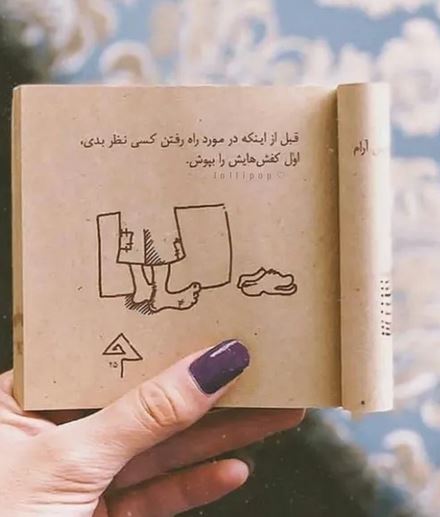 قبل از اینکه در مورد راه رفتن کسی نظر بدی،
اوّل کفش‌هایش را بپوش.
lollipop♡
آرام
۲۵